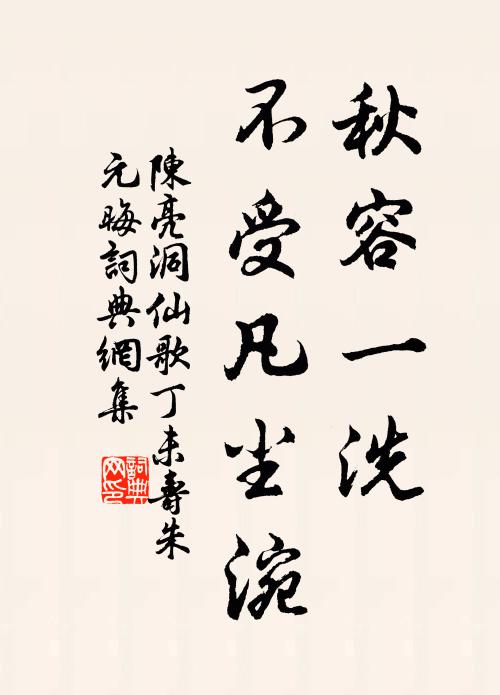 秋容一洗
不受凡尘涴
陳亮洞仙歌丁未壽朱
元晦詞典網集
詞典网印